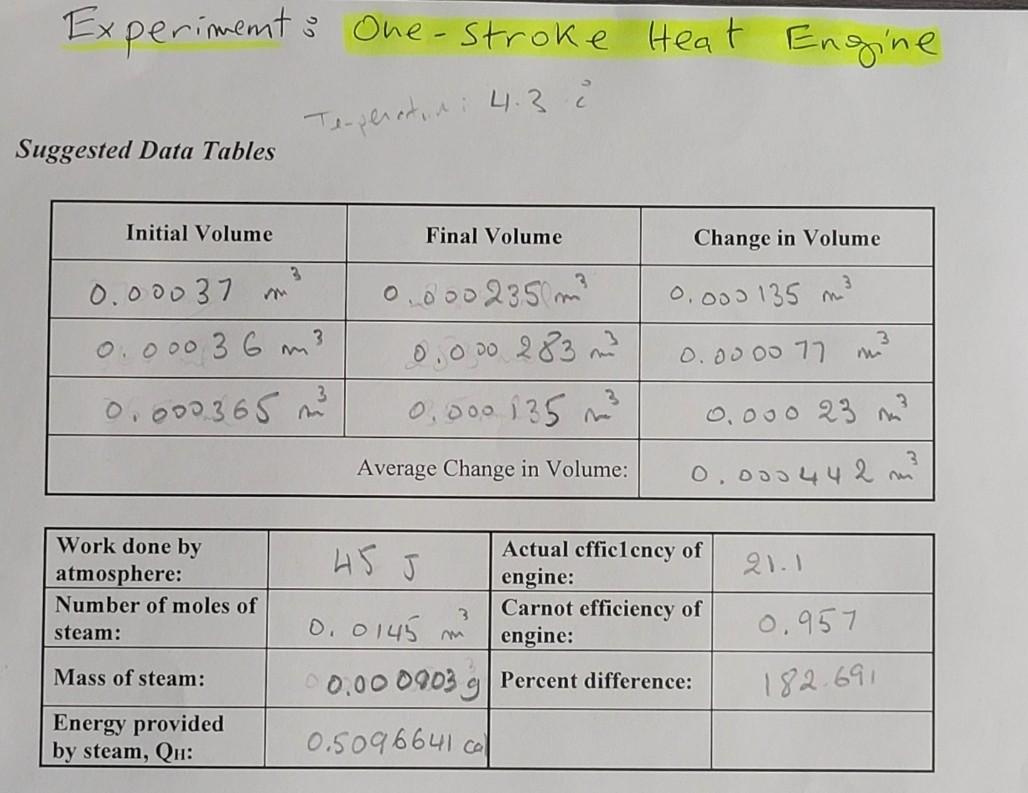 Experiment: One-Stroke Heat Engine
Temperature: 4.3 c
Suggested Data Tables
Initial Volume Final Volume Change in Volume
0.00037 m³ 0.000235 m³ 0.000135 m³
0.00036 m³ 0.000283 m³ 0.000077 m³
0.000365 m³ 0.000135 m³ 0.00023 m³
Average Change in Volume: 0.000442 m³
Work done by atmosphere: 45 J Actual efficiency of engine: 21.1
Number of moles of steam: 0.0145 m³ Carnot efficiency of engine: 0.957
Mass of steam: 0.000903 g Percent difference: 182.691
Energy provided by steam, QH: 0.5096641 cal